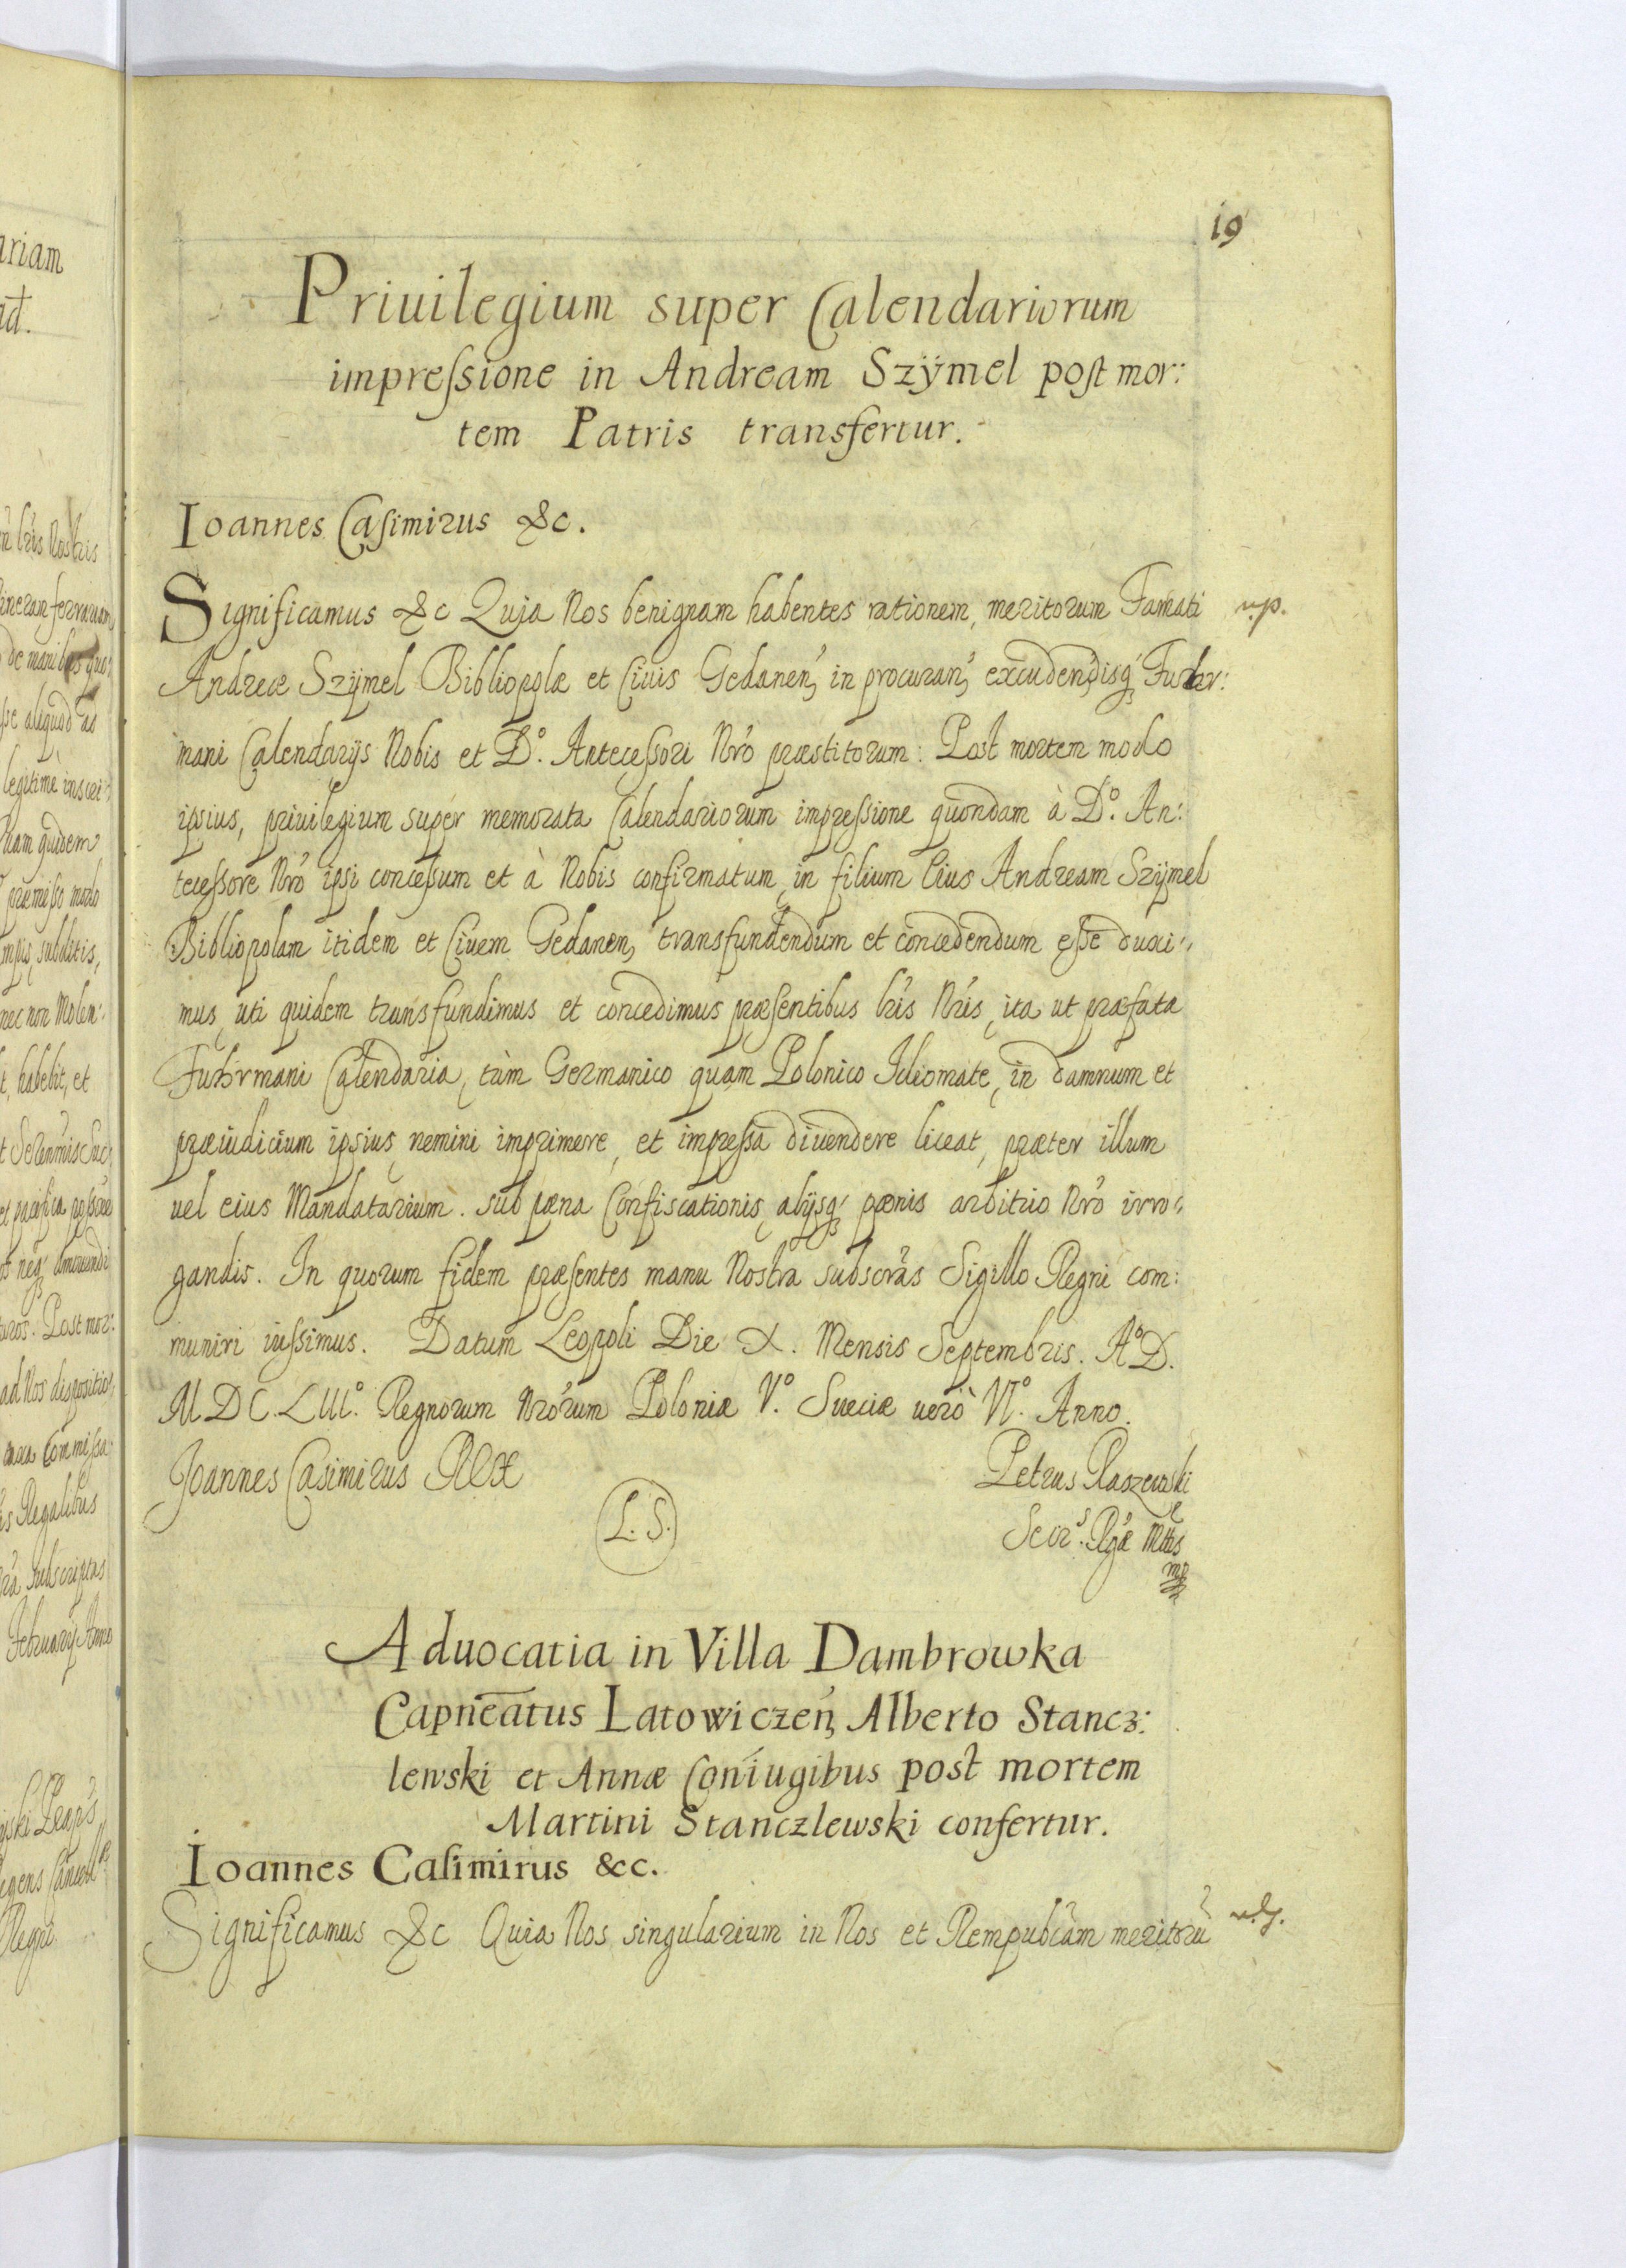 19
Priuilegium super Calendariorum
impreſsione in Andream Szÿmel poſt mor:
tem Patris transfertur.
Ioannes Caſimirus &c.
Significamus &c Quja Nos benignam habentes rationem, meritorum Famati
Andreæ Szÿmel Bibliopolæ et Ciuis Gedanen, in procuran, excudendisq Fuhr:
mani Calendarÿs Nobis et D.º Antecessori Nrô præstitorum: Post mortem modo
ipsius, priuilegium super memorata Calendariorum impreſsione quondam à D.º An:
teceſsore Nrô ipsi conceſsum et à Nobis confirmatum, in filium Eius Andream Szÿmel
Bibliopolam itidem et Ciuem Gedanen, transfundendum et concedendum eſse duxi:
mus, uti quidem transfundimus et concedimus præſentibus lrîs Nrîs, ita ut præfata
Fuhrmani Calendaria, tàm Germanico quam Polonico Idiomate, in damnum et
præiudicium ipsius, nemini imprimere, et impreſsa diuendere liceat, præter illum
uel eius Mandatarium. sub pæna Confiscationis, alÿsq pænis arbitrio Nrô irro:
gandis. In quorum fidem præſentes manu Nostra subscrâs Sigillo Regni com:
muniri iuſsimus. Datum Leopoli Die X. Mensis Septembris. Aº D.
M DC. LIII.º Regnorum Nrôrum Poloniæ V.º Sueciæ uerò VI.º Anno.
Joannes Casimirus REX
Petrus Raszewski
L. S.
Secr.s Rgæ Mttis
mp
Aduocatia in Villa Dambrowka
Capneatus Latowiczen, Alberto Stancz:
lewski et Annæ Coniugibus post mortem
Martini Stanczlewski confertur.
Ioannes Caſimirus &c.
Significamus &c Quia Nos singularium in Nos et Rempubcam meritorũ